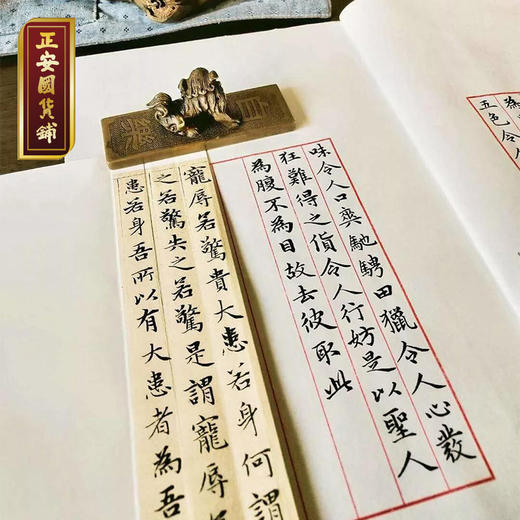 正安國貨鋪
為
五色令
味令人口爽馳騁田獵令人心發
狂難得之貨令人行妨是以聖人
為腹不為目故去彼取此
寵辱若驚貴大患若身何謂
之若驚失之若驚是謂寵辱
患若身吾所以有大患者為吾